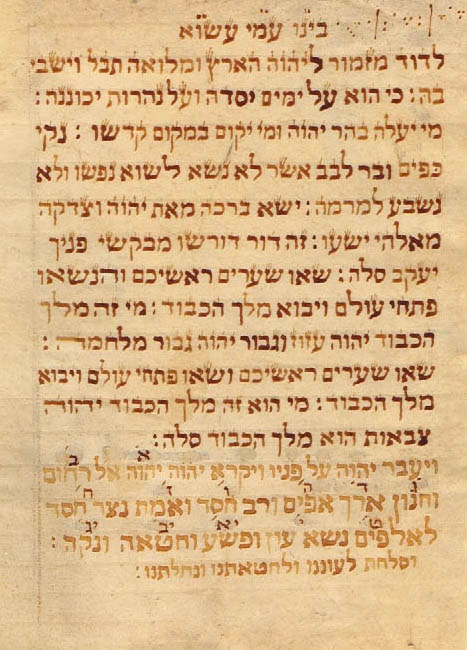 עמי עשו
לדוד מזמור ליהוה הארץ ומלואה תבל וישבי
בה: כי הוא על ימים יסדה ועל נהרות יכוננה:
מי יעלה בהר יהוה ומי יקום במקום קדשו : נקי
כפים ובר לבב אשר לא נשא לשוא נפשו ולא
נשבע למרמה: ישא ברכה מאת יהוה וצדקה
מאלהי ישעו: זה דור דורשו מבקשי פניך
יעקב סלה: שאו שערים ראשיכם והנשאו
פתחי עולם ויבוא מלך הכבוד: מי זה מלך
הכבוד יהוה עזוז וגבור יהוה גבור מלחמה :
שאו שערים ראשיכם ושאו פתחי עולם ויבוא
מלך הכבוד: מי הוא זה מלך הכבוד יהוה
צבאות הוא מלך הכבוד סלה:
ויעבר יהוה על פניו ויקרא יהוה יהוה אל רחום
וחנון ארך אפים ורב חסד ואמת נצר חסד
לאלפים נשא עון ופשע וחטאה ונקה :
וסלחת לעוננו ולחטאתנו ונחלתנו: